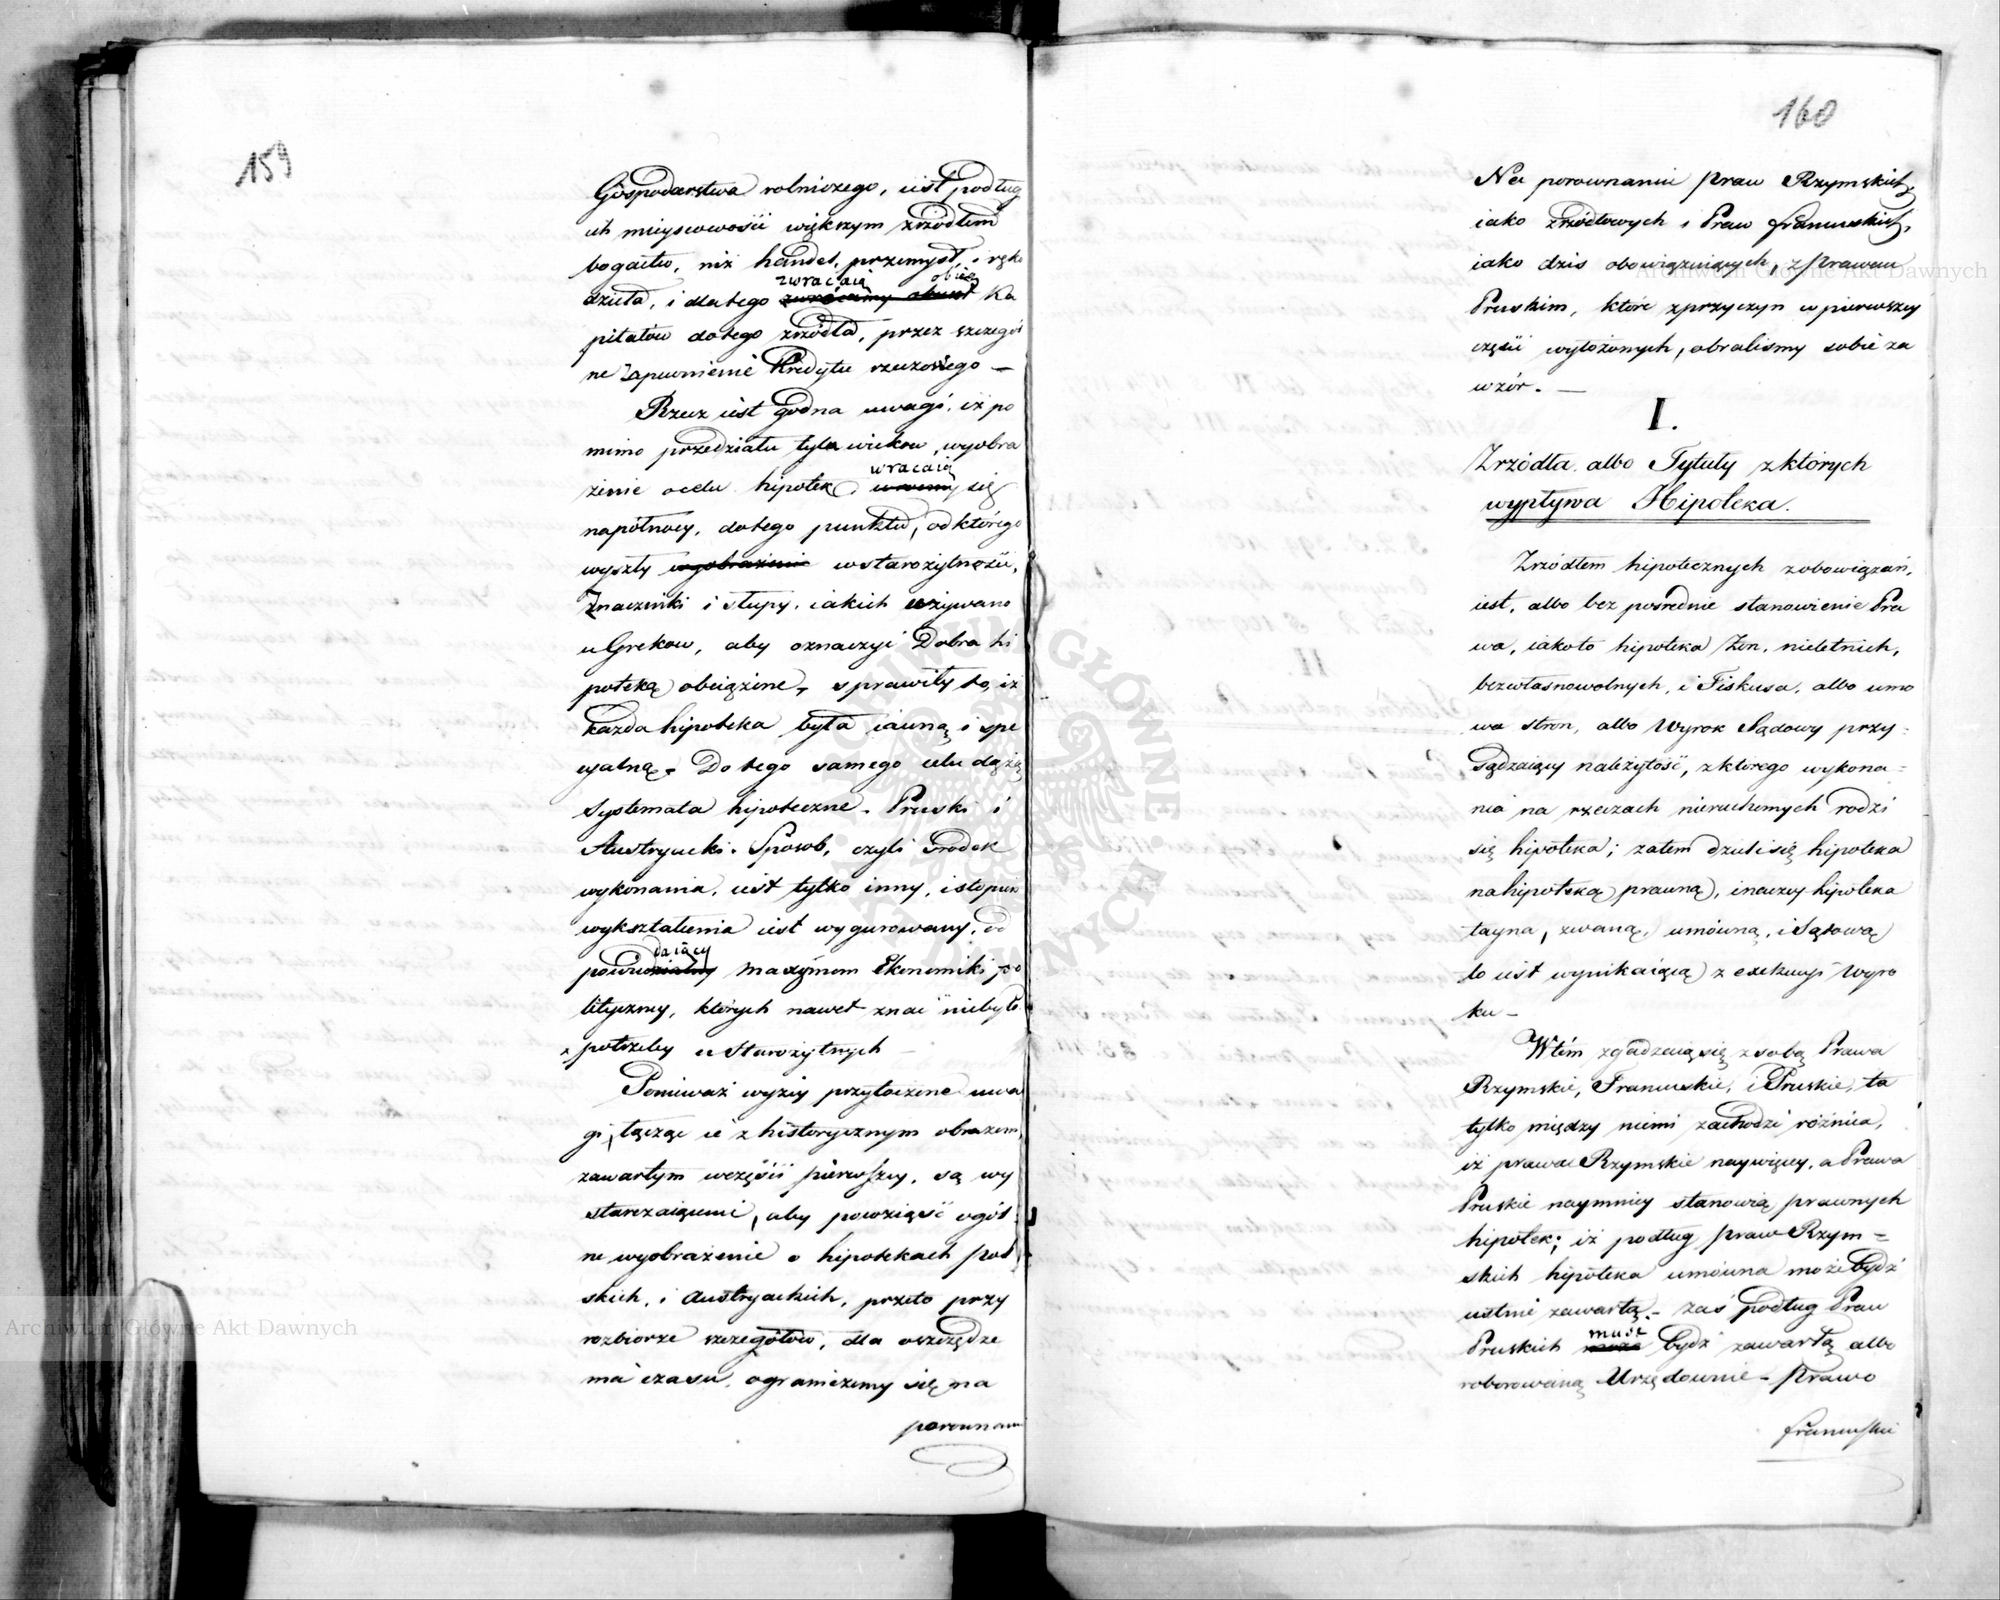 159
Gospodarstwa rolniczego, iest podług
ich mieyscowości większym zrzódłem
bogactw, niż handel, przemysł, i ręko
zwracaią obieg
dzieła, i dlatego zwrócimy obieg Ka
pitałów do tego zrzódła, przez szczegól
ne zapewnienie Kredytu rzeczowego –
Rzecz iest godna uwagi, iż po
mimo przedziału tylu wieków, wyobra
wracaią
żenie o celu hipotek, się
napółnocy, do tego punktu, od którego
wyszły wyobrażenia w starożytności.
Znaczniki i słupy, iakich używano
u Greków, aby oznaczyć Dobra hi
poteką obciążone, sprawiły to, iż
każda hipoteka była iawną i spe
cyalną. Do tego samego celu dążą
Systemata hipoteczne. Pruski i
Austryacki. Sposób, czyli środek
wykonania, iest tylko inny, i stopień
wykształcenia iest wygurowany, od
daiący
powiedzialny maxymom Ekonomiki po
lityczney, których nawet znać niebyło
potrzeby u Starożytnych –
Ponieważ wyżey przytoczone uwa
gi, łącząc ie z historycznym obrazem,
zawartym w części pierwszey, są wy
starczaiącemi, aby powziąść ogól
ne wyobrażenie o hipotekach pol
skich, i Austryackich, przeto przy
rozbiorze szczegółów, dla oszczędze
nia czasu, ograniczemy się na
porównaniu
160
Na porównaniu praw Rzymskich,
iako zrzódłowych i Praw francuskich,
iako dziś obowiązuiących, z prawem
Pruskim, które z przyczyn w pierwszey
części wyłożonych, obraliśmy sobie za
wzór. –
I.
Zrzódła albo Tytuły z których
wypływa Hipoteka.
Zrzódłem hipotecznych zobowiązań,
iest, albo bez pośrednie stanowienie Pra
wa, iakoto hipoteka Żon, nieletnich,
bezwłasnowolnych, i Fiskusa, albo umo
wa stron, albo Wyrok Sądowy przy-
sądzaiący należytość, z którego wykona=
nia na rzeczach nieruchomych rodzi
się hipoteka; zatem dzieli się hipoteka
na hipotekę prawną, inaczey hipoteka
tayna, zwaną, umówną, i Sądową
to iest wynikaiącą z exekucyi Wyro
ku –
W tém zgadzaią się z sobą Prawa
Rzymskie, Francuskie, i Pruskie, ta
tylko między niemi zachodzi różnica,
iż prawa Rzymskie naywięcey, a Prawa
Pruskie naymniey stanowią prawnych
hipotek; iż podług praw Rzym=
skich hipoteka umówna może bydź
ustnie zawartą. – zaś podług Praw
musi
Pruskich może bydź zawartą albo
roborowaną Urzędownie – Prawo
francuskie
Archiwum Główne Akt Dawnych
Archiwum Główne Akt Dawnych
ARCHIWUM GŁÓWNE AKT DAWNYCH